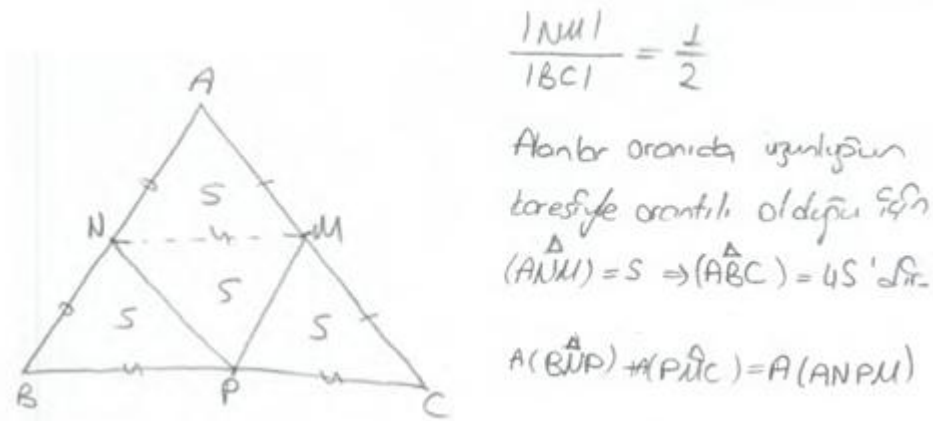 A
S
N
M
S
S
S
B
P
C
|NM| / |BC| = 1/2
Alanlar oranıda uzunluğun
karesiyle orantılı olduğu için
(ANM) = S ⇒ (ABC) = 4S 'dir.
A(BNP) + A(PMC) = A(ANPM)